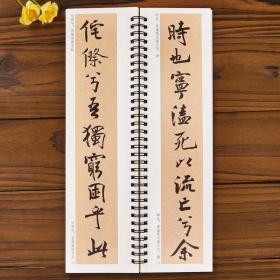 侘傺兮吾獨窮困乎此
時也寧溘死以流亡兮余